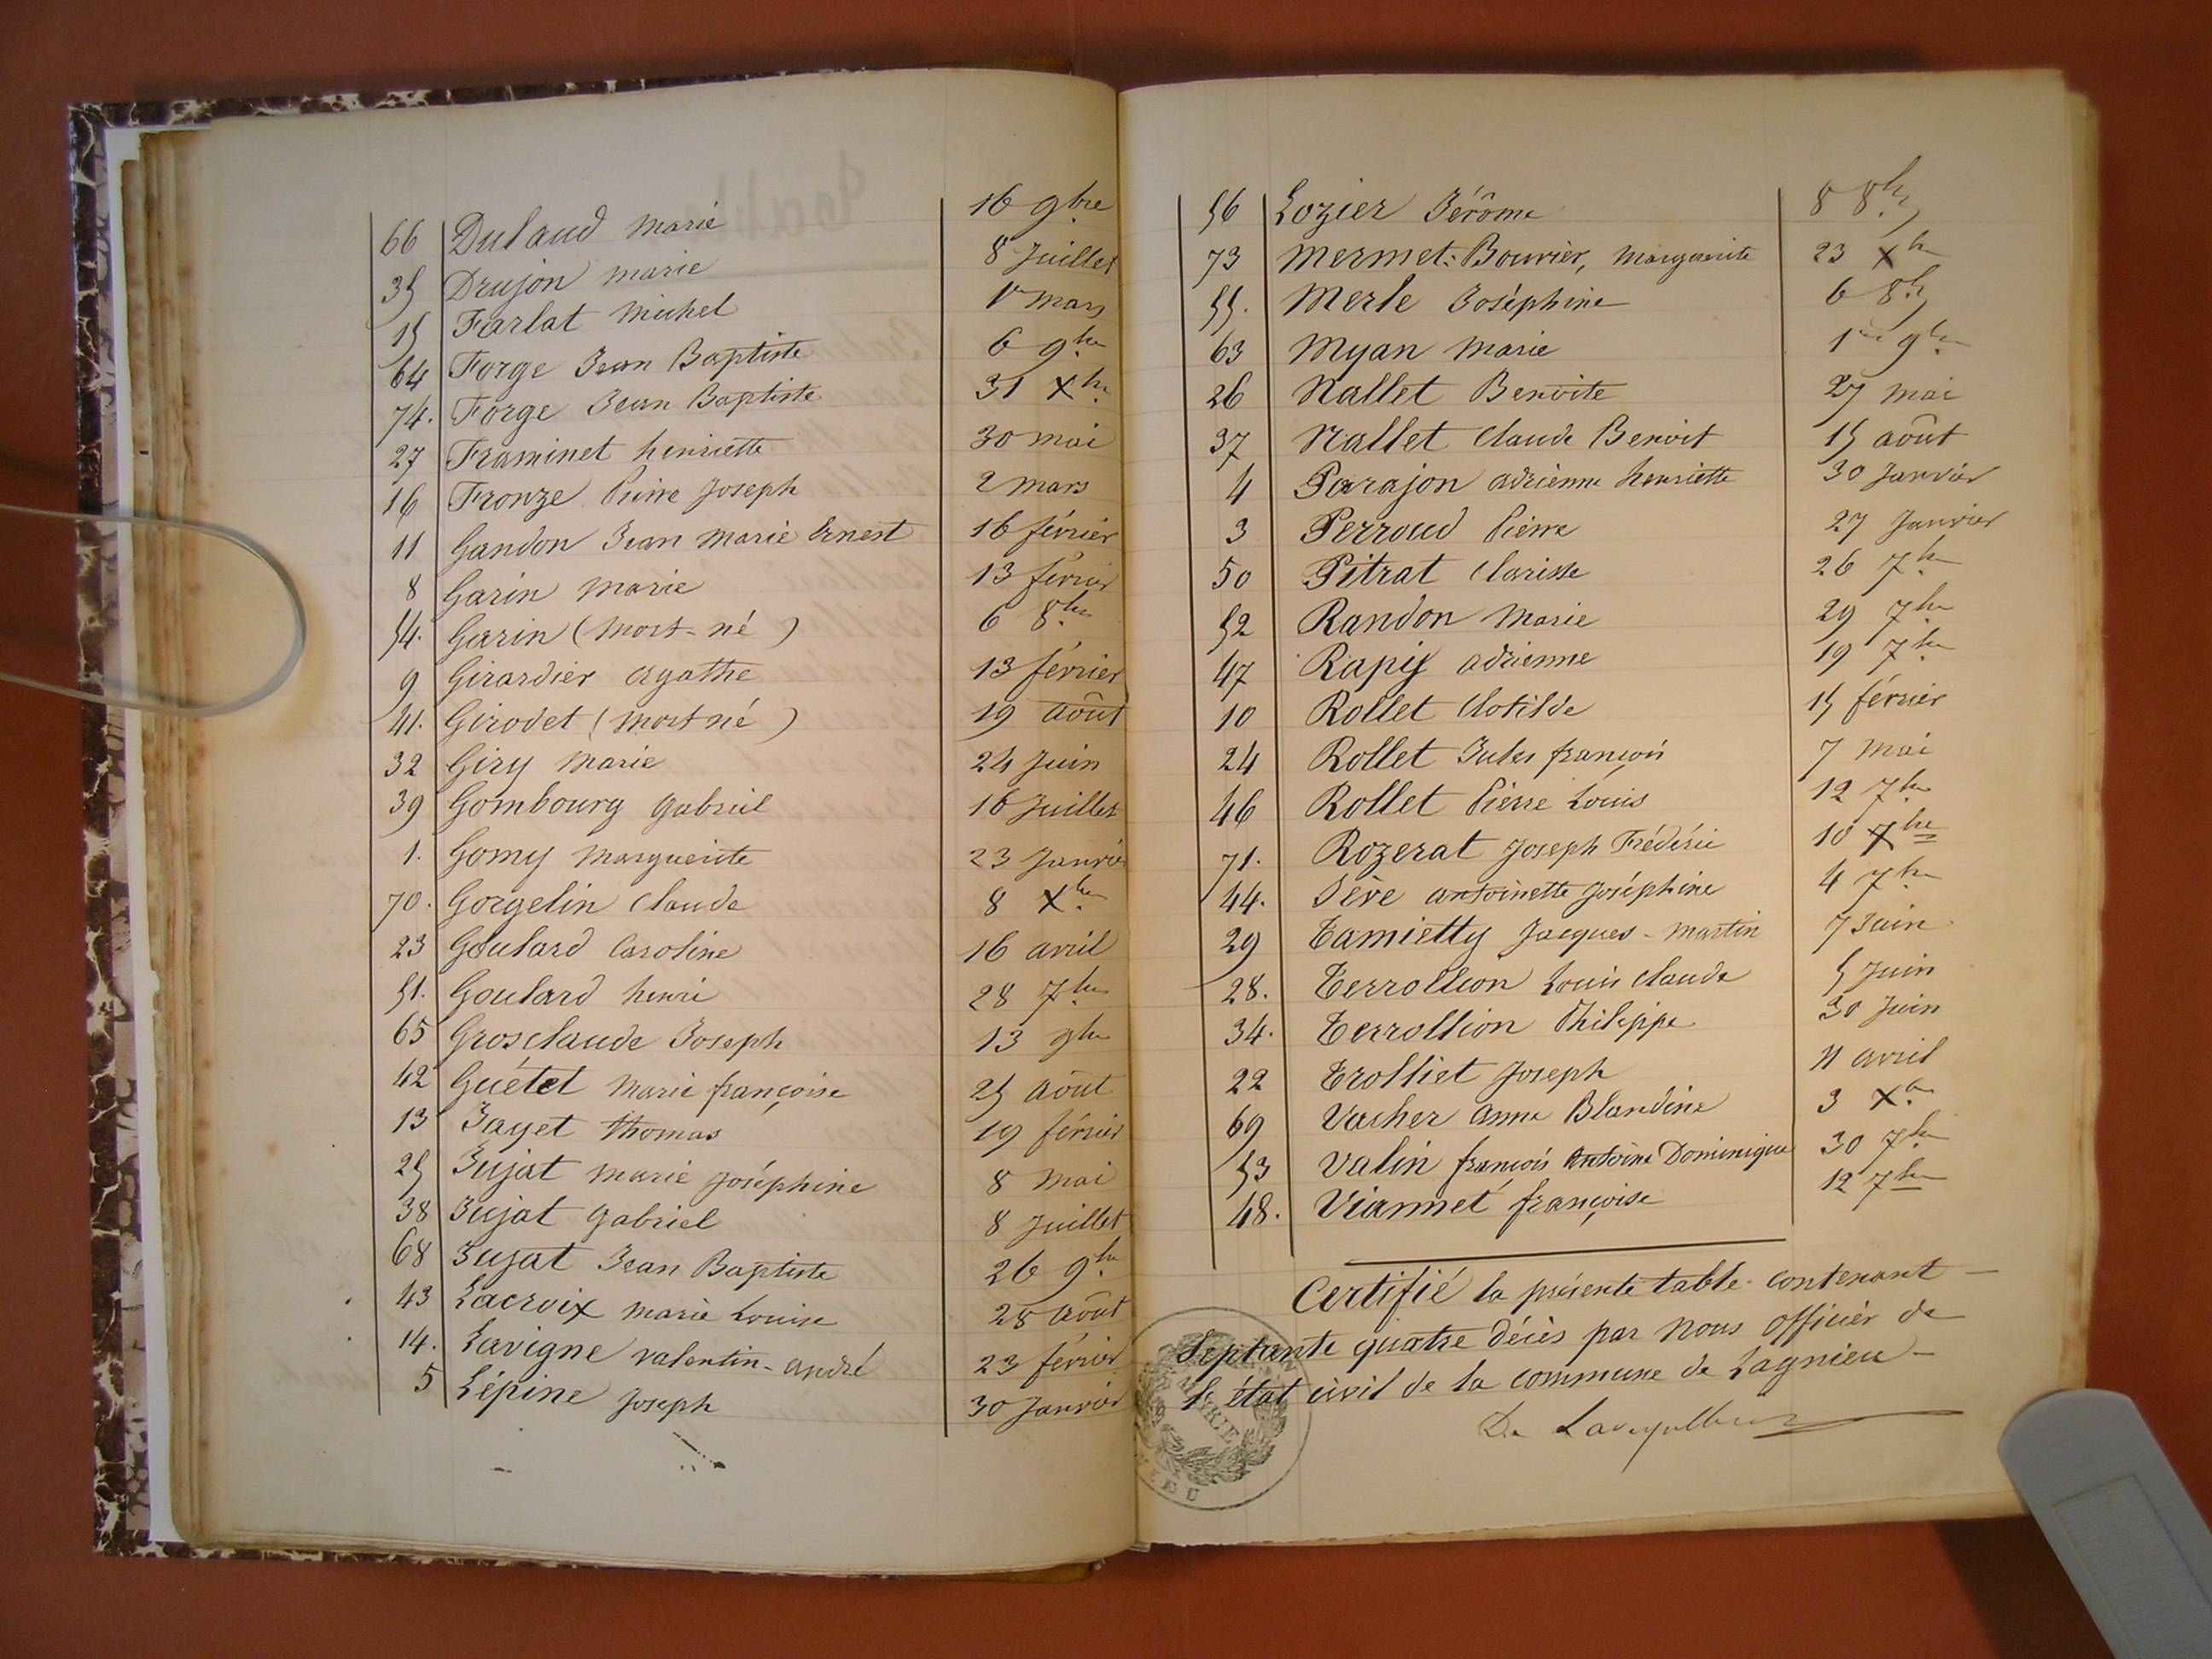 66 Dulaud Marie 16 9bre
35 Drujon Marie 8 Juillet
15 Farlat Michel 1er Mars
64 Forge Jean Baptiste 6 9bre
74. Forge Jean Baptiste 31 Xbre
27 Framinet henriette 30 mai
16 Fronze Pierre Joseph 2 mars
11 Gandon Jean Marie Ernest 16 février
8 Garin Marie 13 février
54. Garin (Mort-né) 6 8bre
9 Girardier Agathe 13 février
41. Girodet (Mort né) 19 Août
32 Giry Marie 24 Juin
39 Gombourg Gabriel 16 Juillet
1. Gomy Marguerite 23 Janvier
70. Gorgelin Claude 8 Xbre
23 Goulard Caroline 16 avril
51. Goulard henri 28 7bre
65 Grosclaude Joseph 13 9bre
42 Guétet Marie françoise 25 Août
13 Jayet Thomas 19 février
25 Jujat Marie Joséphine 8 Mai
38 Jujat Gabriel 8 Juillet
68 Jujat Jean Baptiste 26 9bre
43 Lacroix Marie Louise 28 Août
14. Lavigne Valentin-André 23 février
5 Lépine Joseph 30 Janvier
56 Lozier Jérôme 8 8bre
73 Mermet-Bouvier, Marguerite 23 Xbre
55. Merle Joséphine 6 8bre
63 Myan Marie 1er 9bre
26 Nallet Benoite 27 Mai
37 Nallet Claude Benoit 15 août
4 Parajon Adrienne henriette 30 Janvier
3 Perroud Pierre 27 Janvier
50 Pitrat Clarisse 26 7bre
52 Randon Marie 29 7bre
47 Rapif Adrienne 19 7bre
10 Rollet Clotilde 15 février
24 Rollet Jules françois 7 Mai
46 Rollet Pierre Louis 12 7bre
71. Rozerat Joseph Frédéric 10 Xbre
44. Sève Antoinette Joséphine 4 7bre
29 Tamietty Jacques-Martin 7 Juin
28. Terrollion Louis Claude 5 Juin
34. Terrollion Philippe 30 Juin
22 Trolliet Joseph 11 avril
69 Vacher Anne Blandine 3 Xbre
53 Valin françois Antoine Dominique 30 7bre
48. Vianmet françoise 12 7bre
Certifié la présente table contenant
Septante quatre décès par Nous officier de
l'état civil de la commune de Lagnieu
MAIRIE